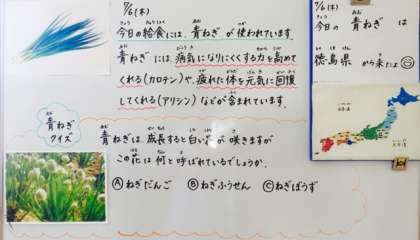 7/6(木)
今日の給食には、青ねぎが使われています。
青ねぎには、病気になりにくくする力を高めて
くれる(カロテン)や、疲れた体を元気に回復
してくれる(アリシン)などが含まれています。
青ねぎ
クイズ
青ねぎは、成長すると白い花が咲きますが
この花は何と呼ばれているでしょうか。
Ⓐねぎだんご Ⓑねぎふうせん Ⓒねぎぼうず
7/6(木)
今日の青ねぎは
徳島県から来たよ